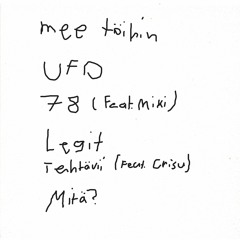 mee töihin
UFO
78 (Feat. Miki)
Legit
Tehtävii (Feat. Crisu)
Mitä?